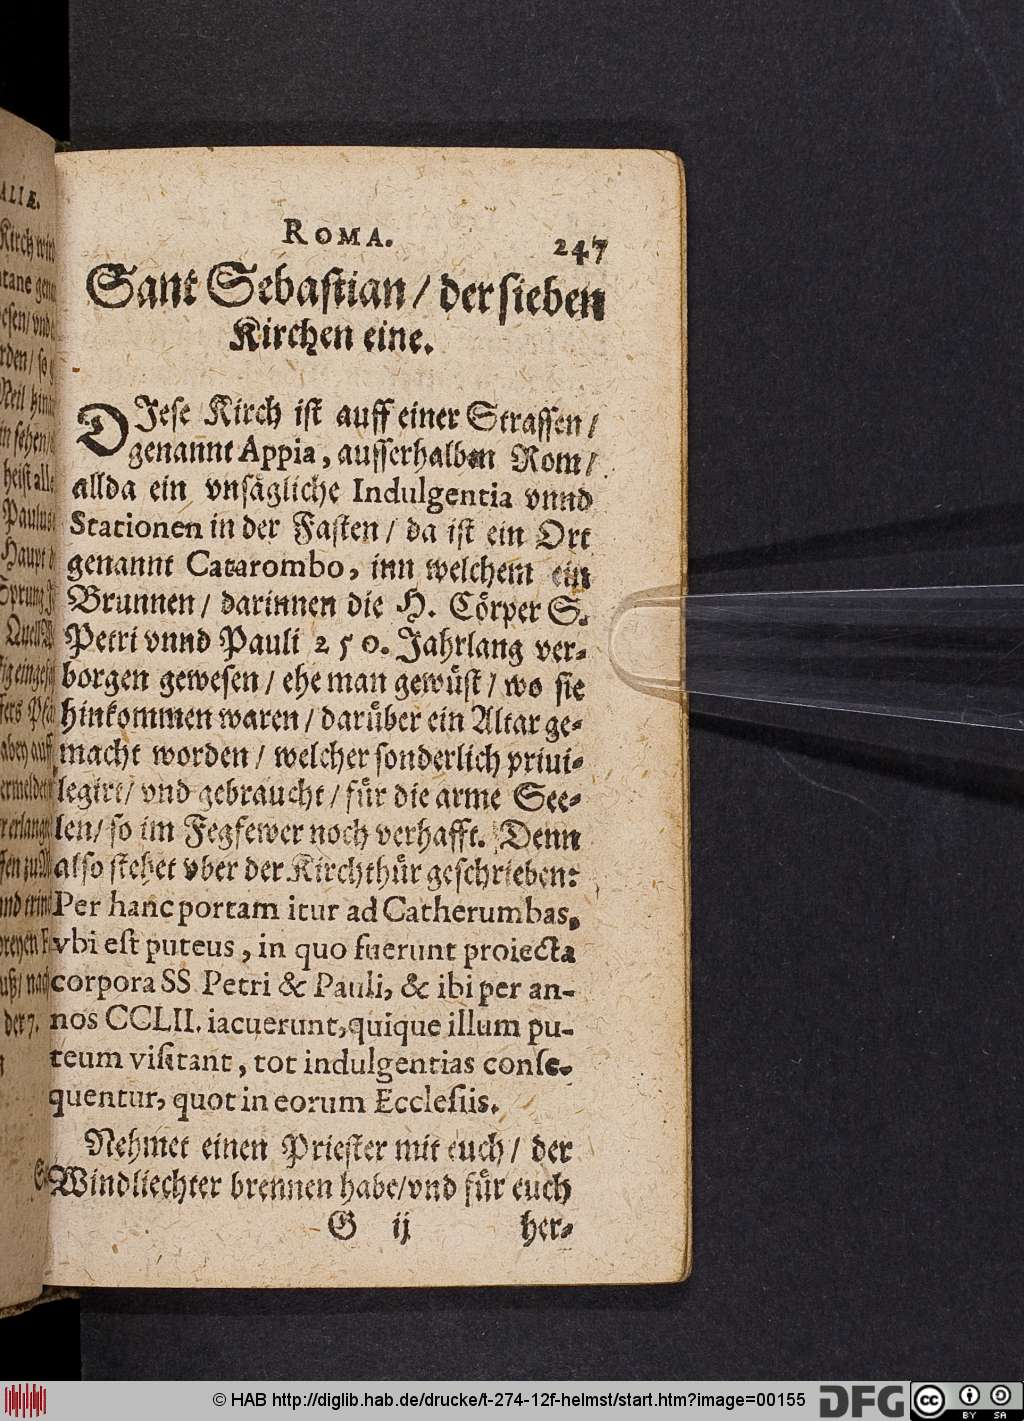 ROMA.
247
Sant Sebastian / der sieben
Kirchen eine.
DIese Kirch ist auff einer Strassen /
genannt Appia, ausserhalben Rom /
allda ein vnsägliche Indulgentia vnnd
Stationen in der Fasten / da ist ein Ort
genannt Catarombo, inn welchem ein
Brunnen / darinnen die H. Cörper S.
Petri vnnd Pauli 250. Jahrlang ver-
borgen gewesen / ehe man gewüst / wo sie
hinkommen waren / darüber ein Altar ge-
macht worden / welcher sonderlich priui-
legirt / vnd gebraucht / für die arme See-
len / so im Fegfewer noch verhafft. Denn
also stehet vber der Kirchthür geschrieben:
Per hanc portam itur ad Catherumbas,
vbi est puteus, in quo fuerunt proiecta
corpora SS Petri & Pauli, & ibi per an-
nos CCLII. iacuerunt, quique illum pu-
teum visitant, tot indulgentias conse-
quentur, quot in eorum Ecclesiis.
Nehmet einen Priester mit euch / der
Windliechter brennen habe / vnd für euch
G ij her-
ALIÆ.
© HAB http://diglib.hab.de/drucke/t-274-12f-helmst/start.htm?image=00155
DFG
cc
BY SA